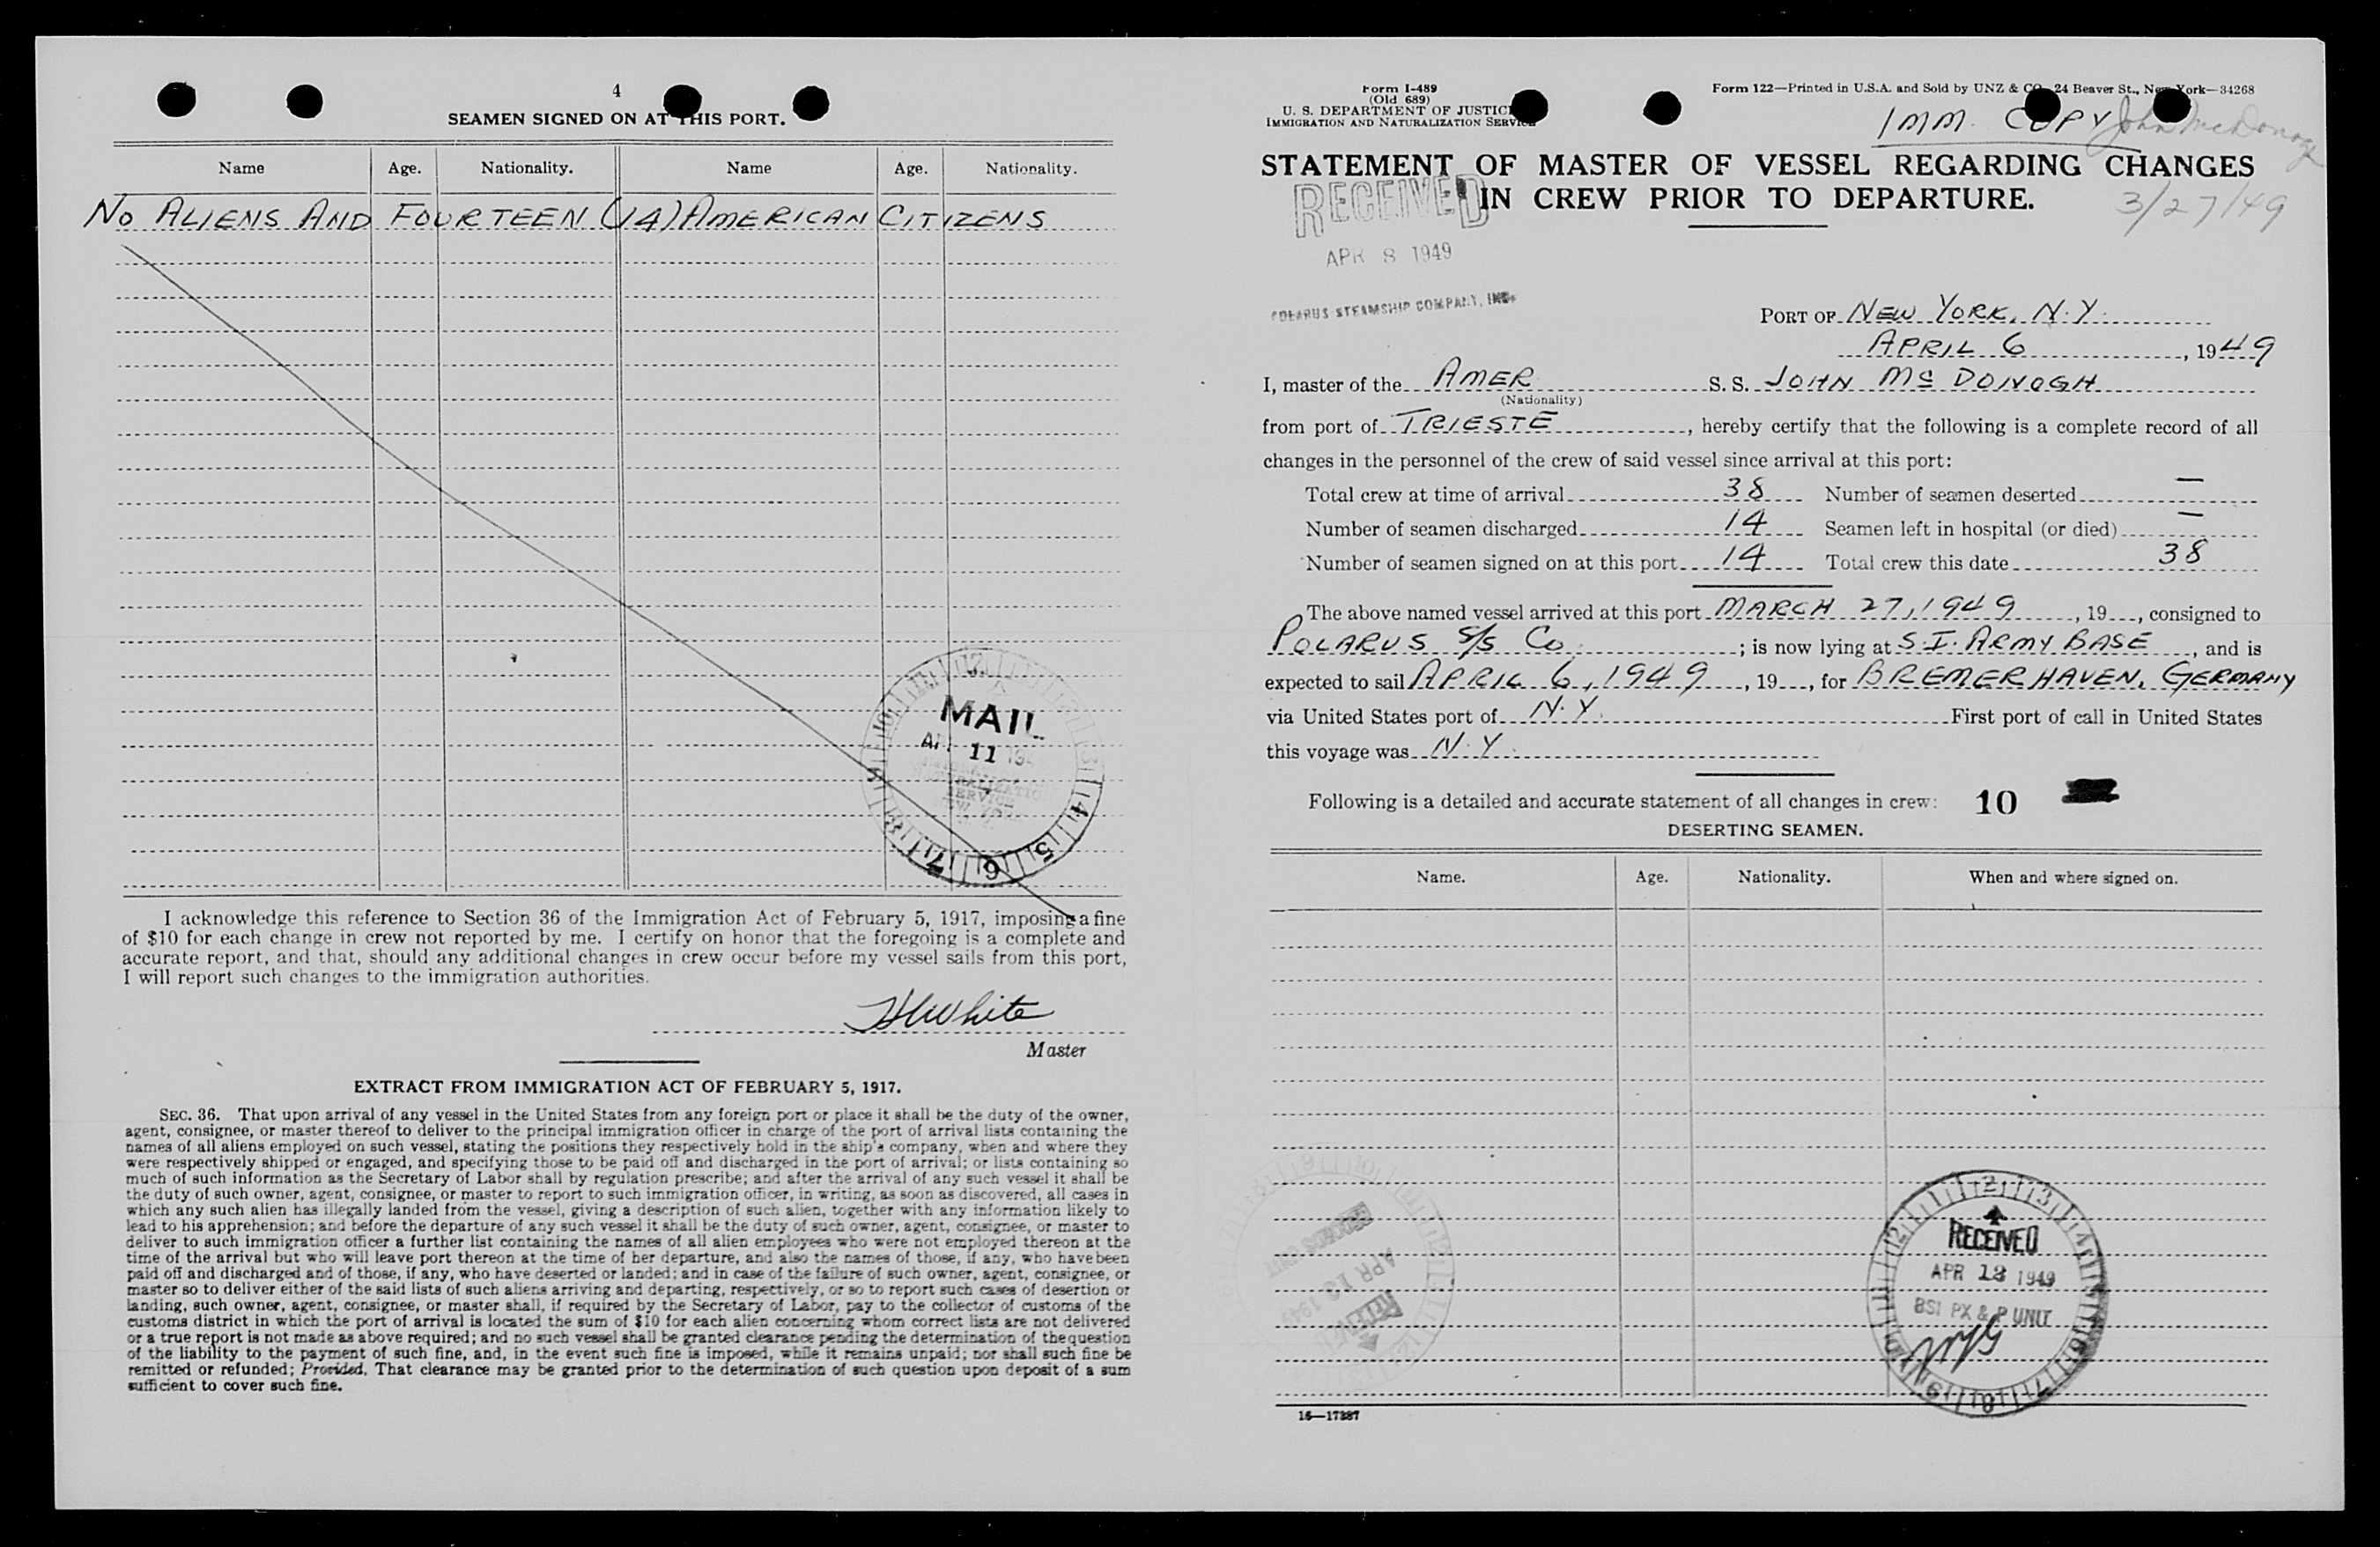 4
SEAMEN SIGNED ON AT THIS PORT.
Name Age. Nationality. Name Age. Nationality.
NO ALIENS AND FOURTEEN (14) AMERICAN CITIZENS
MAIL
11
I acknowledge this reference to Section 36 of the Immigration Act of February 5, 1917, imposing a fine
of $10 for each change in crew not reported by me. I certify on honor that the foregoing is a complete and
accurate report, and that, should any additional changes in crew occur before my vessel sails from this port,
I will report such changes to the immigration authorities.
White
Master
EXTRACT FROM IMMIGRATION ACT OF FEBRUARY 5, 1917.
SEC. 36. That upon arrival of any vessel in the United States from any foreign port or place it shall be the duty of the owner,
agent, consignee, or master thereof to deliver to the principal immigration officer in charge of the port of arrival lists containing the
names of all aliens employed on such vessel, stating the positions they respectively hold in the ship's company, when and where they
were respectively shipped or engaged, and specifying those to be paid off and discharged in the port of arrival; or lists containing so
much of such information as the Secretary of Labor shall by regulation prescribe; and after the arrival of any such vessel it shall be
the duty of such owner, agent, consignee, or master to report to such immigration officer, in writing, as soon as discovered, all cases in
which any such alien has illegally landed from the vessel, giving a description of such alien, together with any information likely to
lead to his apprehension; and before the departure of any such vessel it shall be the duty of such owner, agent, consignee, or master to
deliver to such immigration officer a further list containing the names of all alien employees who were not employed thereon at the
time of the arrival but who will leave port thereon at the time of her departure, and also the names of those, if any, who have been
paid off and discharged and of those, if any, who have deserted or landed; and in case of the failure of such owner, agent, consignee, or
master so to deliver either of the said lists of such aliens arriving and departing, respectively, or so to report such cases of desertion or
landing, such owner, agent, consignee, or master shall, if required by the Secretary of Labor, pay to the collector of customs of the
customs district in which the port of arrival is located the sum of $10 for each alien concerning whom correct lists are not delivered
or a true report is not made as above required; and no such vessel shall be granted clearance pending the determination of the question
of the liability to the payment of such fine, and, in the event such fine is imposed, while it remains unpaid; nor shall such fine be
remitted or refunded; Provided, That clearance may be granted prior to the determination of such question upon deposit of a sum
sufficient to cover such fine.
Form I-489
(Old 689)
U. S. DEPARTMENT OF JUSTICE
IMMIGRATION AND NATURALIZATION SERVICE
Form 122—Printed in U.S.A. and Sold by UNZ & CO. 24 Beaver St., New York—34268
IMM. COPY John McDonogh
STATEMENT OF MASTER OF VESSEL REGARDING CHANGES
IN CREW PRIOR TO DEPARTURE.
3/27/49
RECEIVED
APR 8 1949
POLARUS STEAMSHIP COMPANY, INC.
PORT OF NEW YORK, N.Y.
APRIL 6, 1949
I, master of the AMER S. S. JOHN Mc DONOGH
(Nationality)
from port of TRIESTE, hereby certify that the following is a complete record of all
changes in the personnel of the crew of said vessel since arrival at this port:
Total crew at time of arrival 38 Number of seamen deserted —
Number of seamen discharged 14 Seamen left in hospital (or died) —
Number of seamen signed on at this port 14 Total crew this date 38
The above named vessel arrived at this port MARCH 27, 1949, 19, consigned to
POLARUS S/S Co.; is now lying at S.I. ARMY BASE, and is
expected to sail APRIL 6, 1949, 19, for BREMERHAVEN, GERMANY
via United States port of N.Y. First port of call in United States
this voyage was N.Y.
Following is a detailed and accurate statement of all changes in crew: 10
DESERTING SEAMEN.
Name. Age. Nationality. When and where signed on.
RECEIVED
APR 13 1949
BSI PX & P UNIT
16—17387